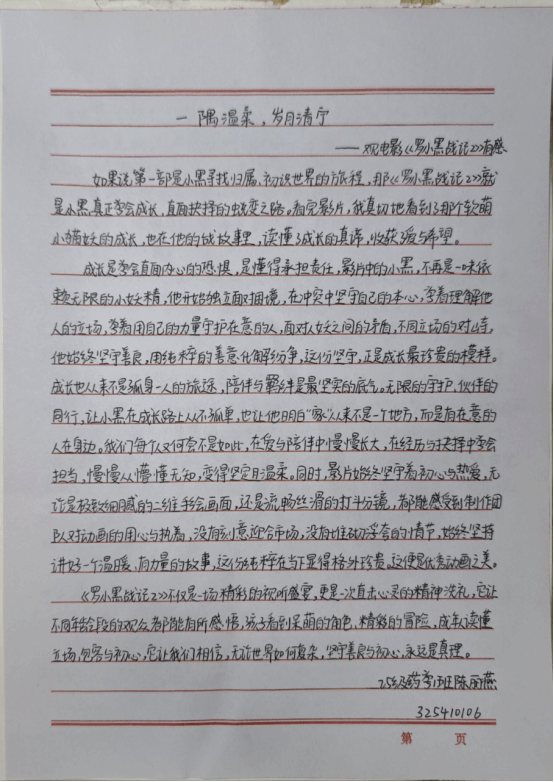 一隅温柔，岁月清宁
——观电影《罗小黑战记2》有感
如果说第一部是小黑寻找归属、初识世界的旅程，那《罗小黑战记2》就
是小黑真正学会成长、直面抉择的蜕变之路。看完影片，我真切地看到了那个软萌
小猫妖的成长，也在他的故事里，读懂了成长的真谛，收获爱与希望。
成长是学会直面内心的恐惧，是懂得承担责任，影片中的小黑，不再是一味依
赖无限的小妖精，他开始独立面对困境，在冲突中坚守自己的本心，学着理解他
人的立场，学着用自己的力量守护在意的人，面对人妖之间的矛盾，不同立场的对峙，
他始终坚守善良，用纯粹的善意化解纷争，这份坚守，正是成长最珍贵的模样。
成长也从来不是孤身一人的旅途，陪伴与羁绊是最坚实的底气。无限的守护，伙伴的
同行，让小黑在成长路上从不孤单，也让他明白“家”从来不是一个地方，而是有在意的
人在身边。我们每个人又何尝不是如此，在爱与陪伴中慢慢长大，在经历与抉择中学会
担当，慢慢从懵懂无知，变得坚定且温柔。同时，影片始终坚守着初心与热爱，无
论是极致细腻的二维手绘画面，还是流畅丝滑的打斗分镜，都能感受到制作团
队对动画的用心与执着，没有刻意迎合市场，没有堆砌浮夸的情节，始终坚持
讲好一个温暖、有力量的故事，这份纯粹在当下显得格外珍贵。这便是优秀动画之美。
《罗小黑战记2》不仅是一场精彩的视听盛宴，更是一次直击心灵的精神洗礼，它让
不同年龄段的观众都能有所感悟，孩子看到呆萌的角色，精彩的冒险，成年人读懂
立场、包容与初心，它让我们相信，无论世界如何复杂，坚守善良与初心，永远是真理。
25级药学1班陈丽燕
325410106
第 页